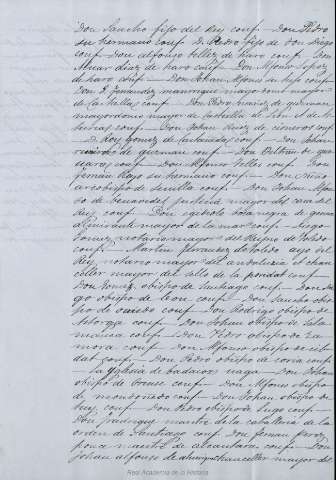 Don Sancho fijo del Rey conf — Don Pedro
su hermano conf — D Pedro fijo de don Diego
conf — Don alfonso tellez de haro conf — Don
Alvar diaz de haro conf — Don Alfonso Lopez
de haro conf — Don Johan Alfonso su fijo conf —
Don G Ferrandez manrique mayor
de castiella conf — Don Pedro nuñez de guzman
mayordomo mayor de castiella de
conf — Don Johan de cisneros conf
— D Ruy Gonzalez de conf — Don Johan
de guzman conf — Don Beltran de gue
vara conf — Don Alfonso Tellez conf — Don
ferrán Royo su hermano conf — Don Niño
arcobispo de Sevilla conf — Don Johan Alfon
so de benavides justicia mayor de la casa del
Rey conf — Don egidiolo bocanegra de genoa
almirante mayor de la mar conf — Diego
Gomez notario mayor del Regno de Toledo
conf — Martin ferrandez de Toledo ayo del
Rey notario mayor del andalucia et chan
celler mayor del sello de la poridat conf —
Don Gomez obispo de Santiago conf — Don
obispo de leon conf — Don Sancho obis
po de oviedo conf — Don Rodrigo obispo de
Astorga conf — Don Johan obispo de Sala
manca conf — Don Pedro obispo de Ca
mora conf — Don Alfonso obispo de cib
dat conf — Don Pedro obispo de coria conf
— la Yglesia de badaioz vaga — Don Johan
obispo de orense conf — Don Alfonso obispo
de mondoñedo conf — Don Johan obispo de
tuy conf — Don Pedro obispo de Lugo conf —
Don fradrique maestre de la caballeria de la
orden de Santiago conf — Don fernan perez
ponce maestre de alcantara conf — Don
Johan alfonso de chanceller mayor del
Real Academia de la Historia